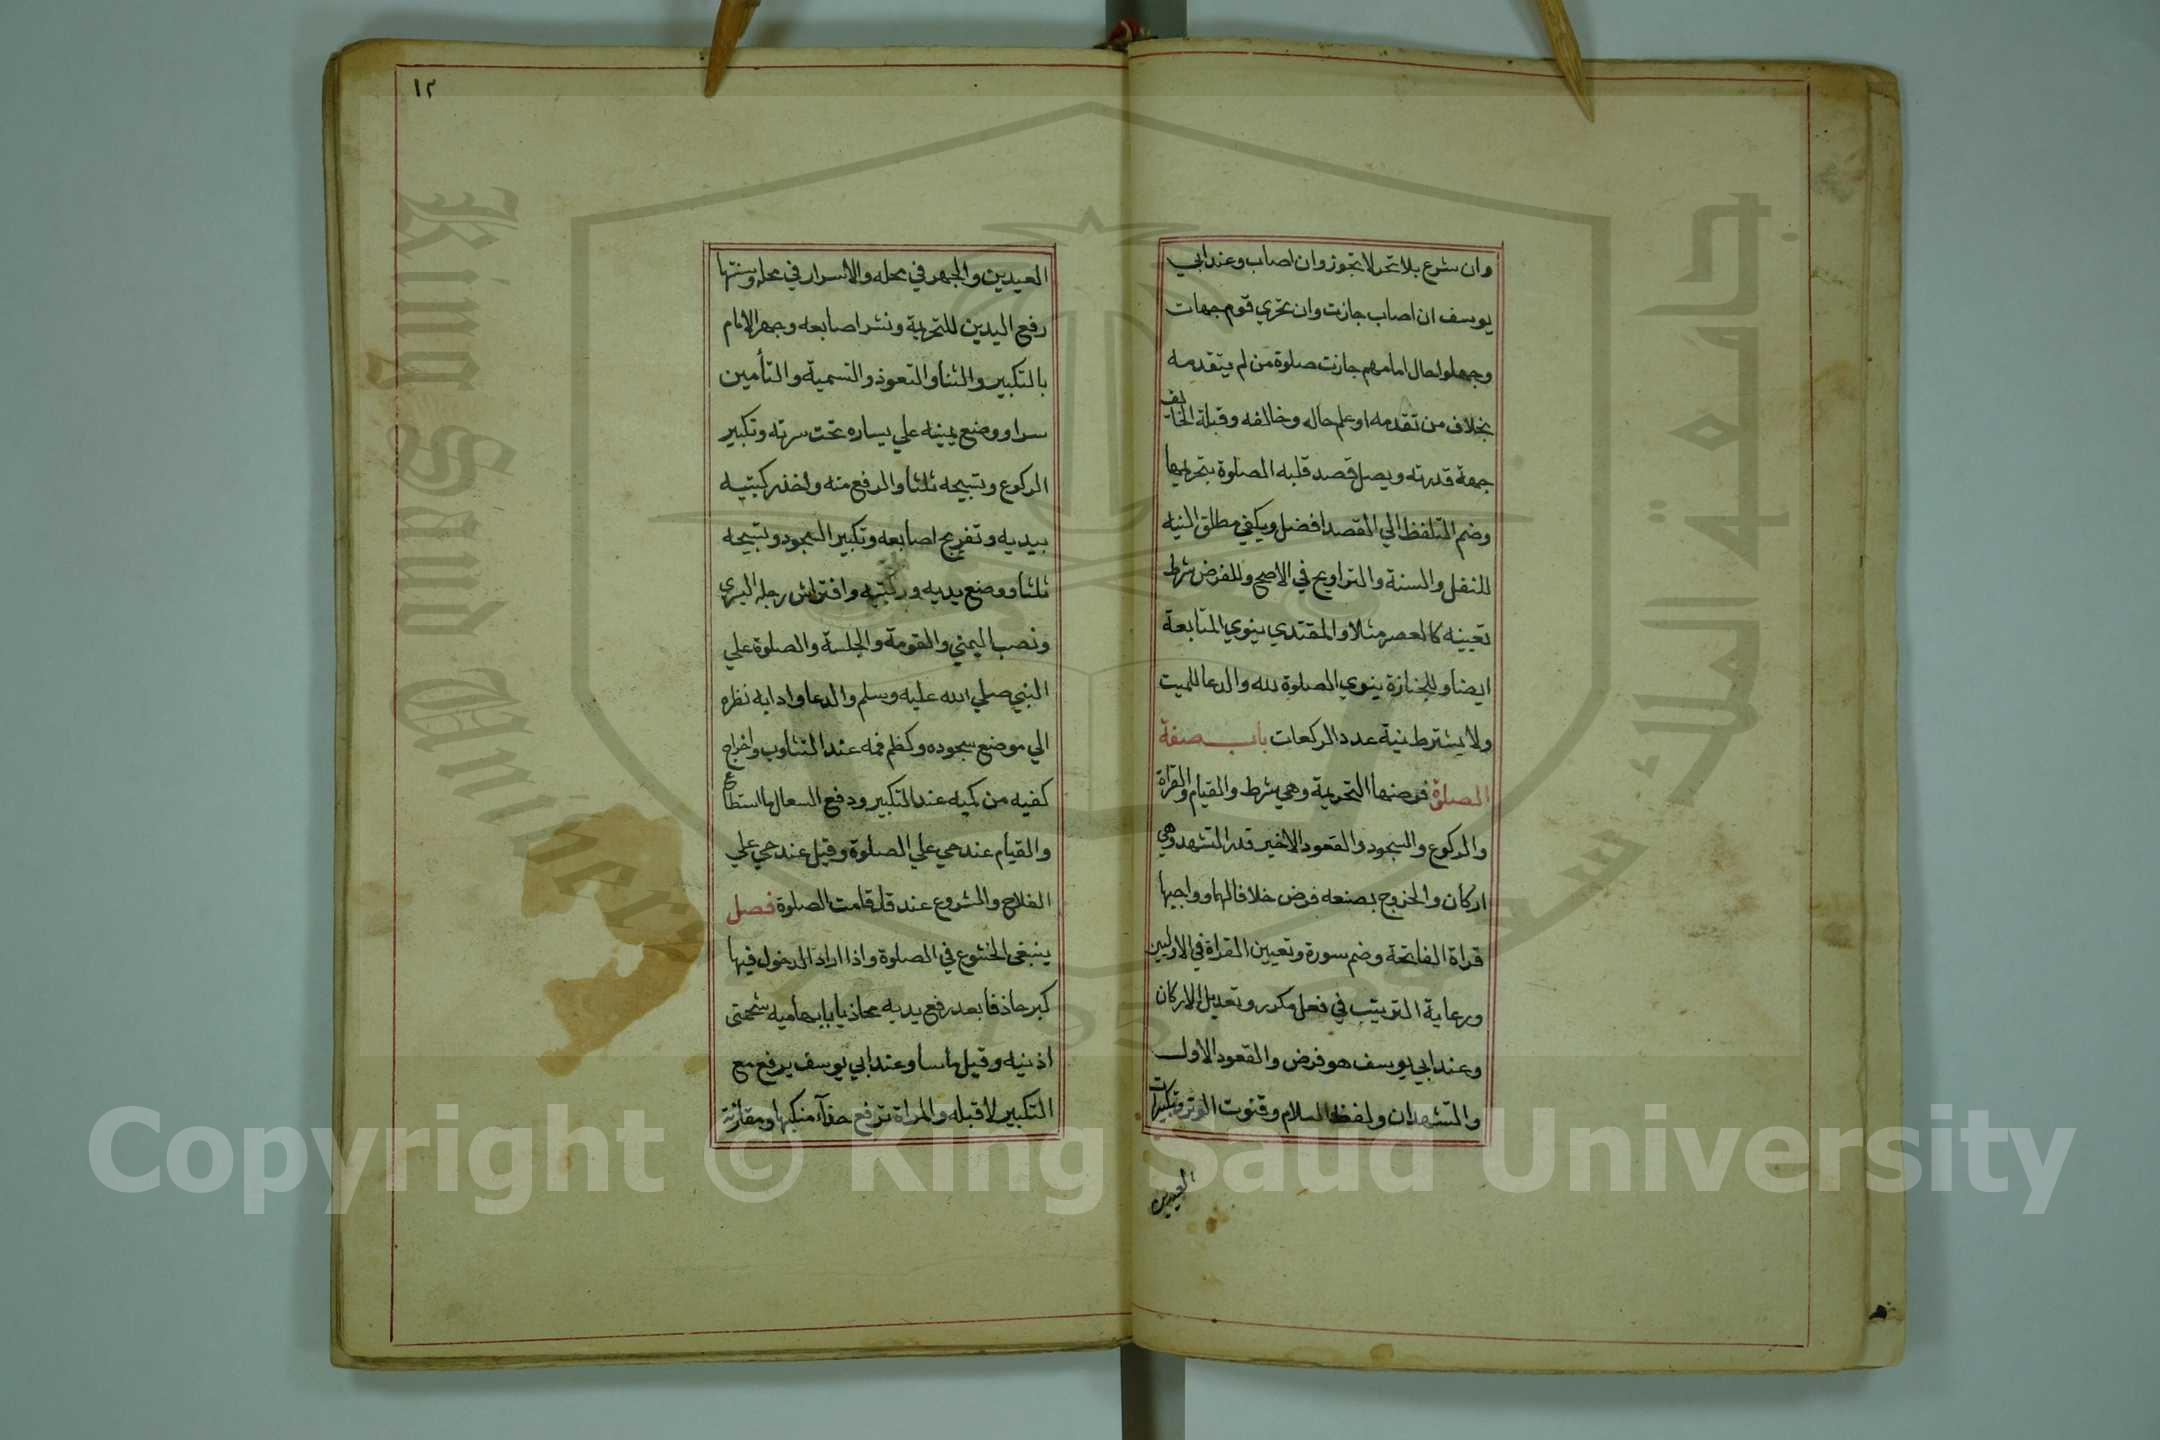 وان شرع بلا تحر لا تجوز وان اصاب وعند ابي
يوسف ان اصاب جازت وان تحري قوم جهات
وجهلوا حال امامهم جازت صلوة من لم يتقدمه
بخلاف من تقدمه او علم حاله وخالفه وقبلة الخايف
جهة قدرته ويصل قصد قلبه الصلوة بتحريمها
وضم التلفظ الي القصد افضل ويكفي مطلق النيه
للنفل والسنة والتراويح في الاصح وللفرض شرط
تعيينه كالعصر مثلا والمقتدي ينوي المتابعة
ايضا وللجنازة ينوي الصلوة لله والدعا للميت
ولا يشترط نية عدد الركعات باب صفة
الصلوة فرضها التحريمة وهي شرط والقيام والقراة
والركوع والسجود والقعود الاخير قدر التشهد وهي
اركان والخروج بصنعه فرض خلافا لهما وواجبها
قراة الفاتحة وضم سورة وتعيين القراة في الاوليين
ورعاية الترتيب في فعل مكرر وتعديل الاركان
وعند ابي يوسف هو فرض والقعود الاول
والتشهدان ولفظ السلام وقنوت الوتر وتكبيرات
العيدين
١٢
العيدين والجهر في محله والاسرار في محله وسنتها
رفع اليدين للتحريمة ونشر اصابعه وجهر الامام
بالتكبير والثنا والتعوذ والتسمية والتأمين
سرا ووضع يمينه علي يساره تحت سرته وتكبير
الركوع وتسبيحه ثلثا والرفع منه واخذ ركبتيه
بيديه وتفريج اصابعه وتكبير السجود وتسبيحه
ثلثا ووضع يديه وركبتيه وافتراش رجله اليسري
ونصب اليمني والقومة والجلسة والصلوة علي
النبي صلي الله عليه وسلم والدعا وادابه نظره
الي موضع سجوده وكظم فمه عند التثاوب واخراج
كفيه من كميه عند التكبير ودفع السعال ما استطاع
والقيام عند حي علي الصلوة وقيل عند حي علي
الفلاح والشروع عند قد قامت الصلوة فصل
ينبغي الخشوع في الصلوة واذا اراد الدخول فيها
كبر حاذفا بعد رفع يديه محاذيا بابهاميه شحمتي
اذنيه وقيل ماسا وعند ابي يوسف يرفع مع
التكبير لا قبله والمراة ترفع حذآء منكبيها ومقارنة
King Saud University
جامعة الملك سعود
1957
Copyright © King Saud University